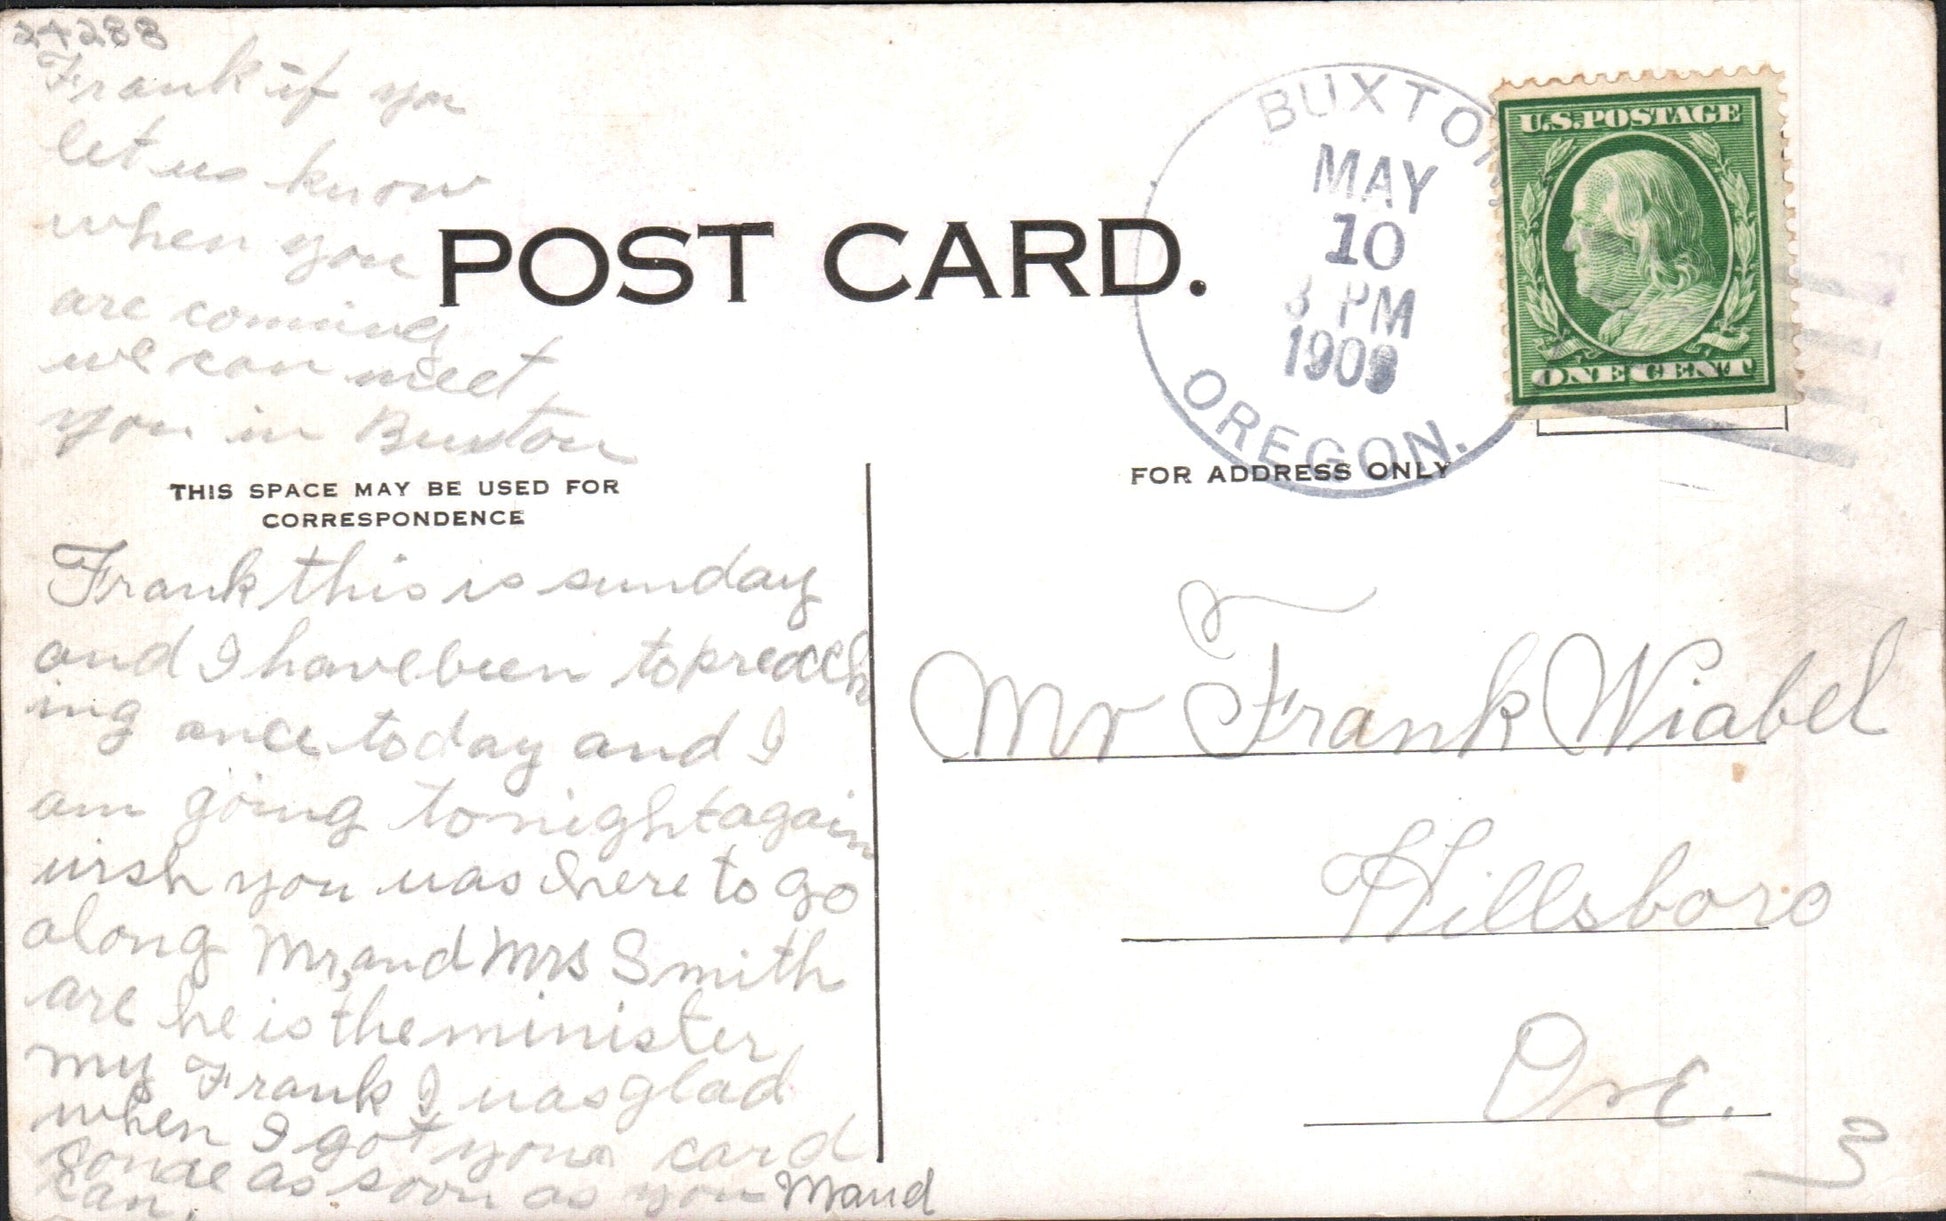 24288
Frank if you
let us know
when you
are coming
we can meet
you in Buxton
POST CARD.
BUXTON
MAY
10
3 PM
1909
OREGON.
U.S. POSTAGE
ONE CENT
THIS SPACE MAY BE USED FOR
CORRESPONDENCE
FOR ADDRESS ONLY
Frank this is sunday
and I have been to preach
ing once today and I
am going to night again
wish you was here to go
along Mr, and Mrs Smith
are he is the minister
my Frank I was glad
when I got your card
as soon as you
can.
Maud
Mr Frank Wiabel
Hillsboro
Ore.
3